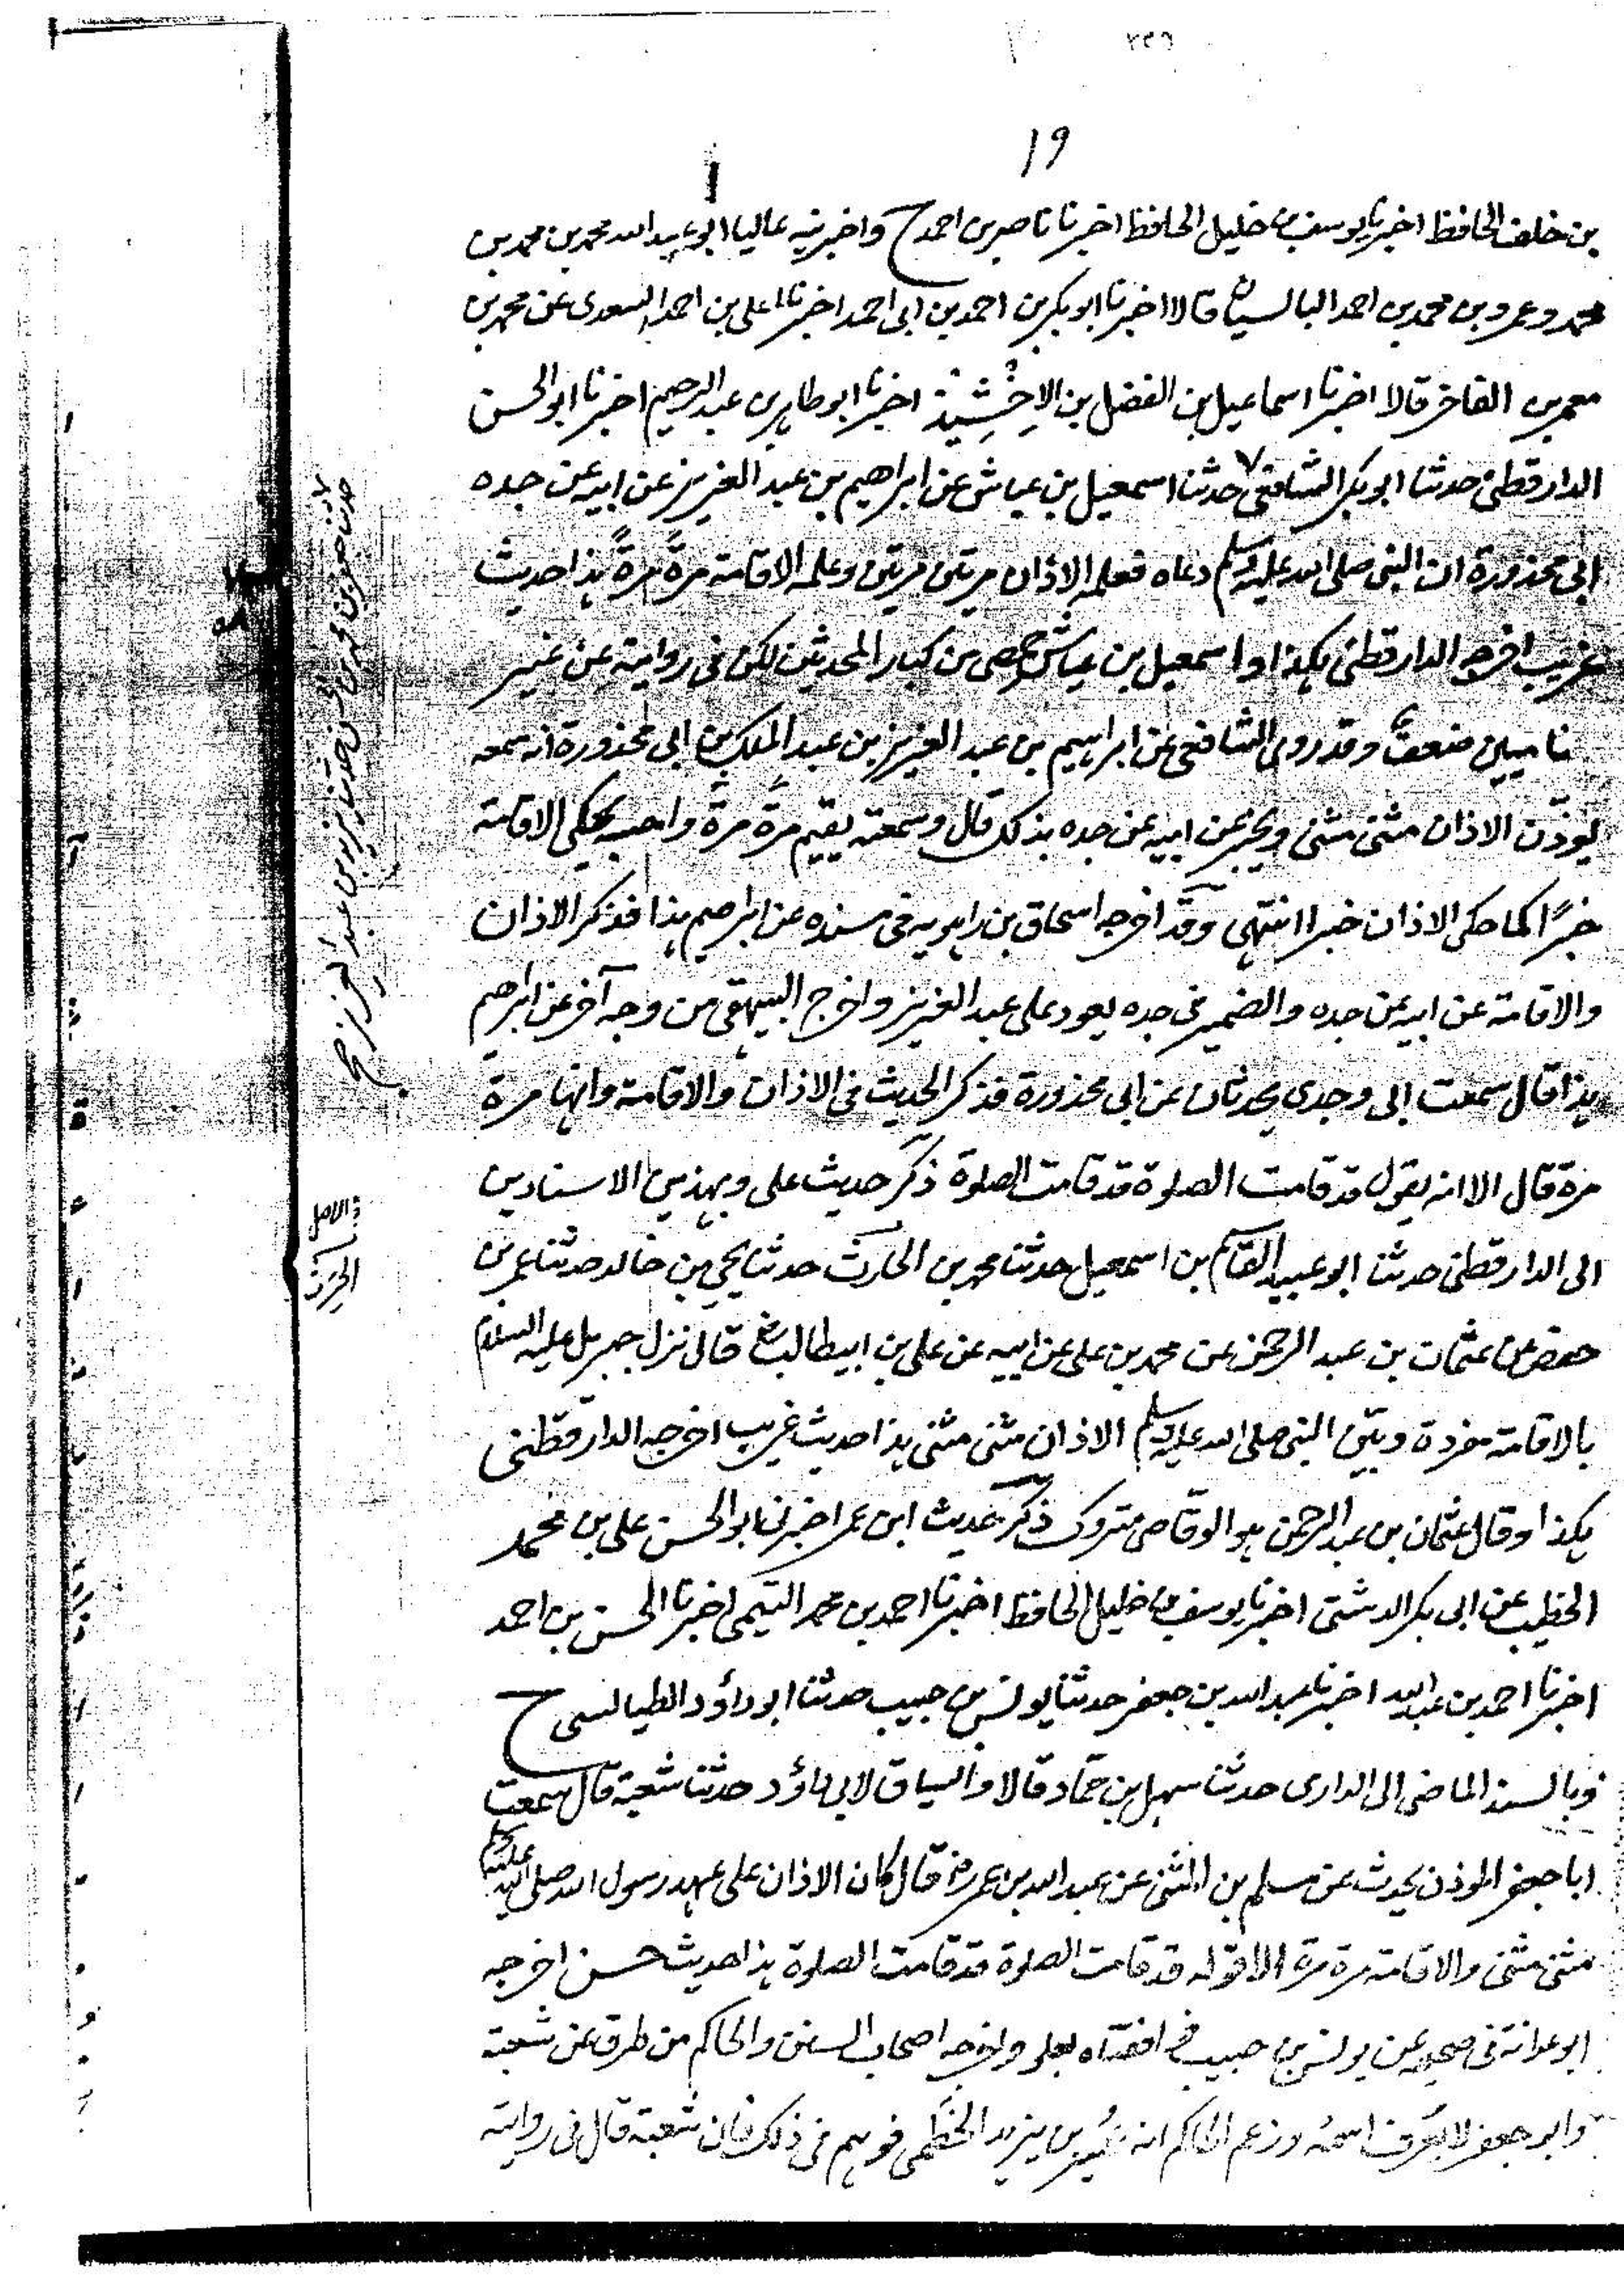 ٢٣٥
١٩
بن خلف الحافظ اخبرنا يوسف بن خليل الحافظ اخبرنا ناصر بن احمد ح واخبرنيه عاليا ابو عبد الله محمد بن محمد بن
محمد وعمر وبن محمد بن احمد البالسيان قالا اخبرنا ابو بكر بن احمد بن ابى احمد اخبرنا على بن احمد السعدى عن محمد بن
معمر بن الفاخر قالا اخبرنا اسماعيل بن الفضل بن الاخشيذ اخبرنا ابو طاهر بن عبد الرحيم اخبرنا ابو الحسن
الدارقطنى حدثنا ابو بكر الشافعى حدثنا اسمعيل بن عياش عن ابراهيم بن عبد العزيز عن ابيه عن جده
ابى محذورة ان النبى صلى الله عليه وسلم دعاه فعلمه الاذان مرتين مرتين وعلمه الاقامة مرةً مرةً هذا حديث
غريب اخرجه الدارقطنى هكذا واسمعيل بن عياش حمصى من كبار المحدثين لكن فى روايته عن غير
شاميين ضعف وقد روى الشافعى عن ابراهيم بن عبد العزيز بن عبد الملك بن ابى محذورة انه سمعه
يوذّن الاذان مثنى مثنى ويخبر عن ابيه عن جده بذلك قال وسمعته يقيم مرة مرة واحسبه يحكى الاقامة
خبرًا كما حكى الاذان خبرا انتهى وقد اخرجه اسحاق بن راهويه فى مسنده عن ابراهيم هذا فذكر الاذان
والاقامة عن ابيه عن جده والضمير فى جده يعود على عبد العزيز واخرج البيهقى من وجه آخر عن ابراهيم
هذا قال سمعت ابى وجدى يحدثان عن ابى محذورة فذكر الحديث فى الاذان والاقامة وانها مرة
مرة قال الا انه يقول قد قامت الصلوة قد قامت الصلوة ذكر حديث على وبهذين الاسنادين
الى الدارقطنى حدثنا ابو عبيد القاسم بن اسمعيل حدثنا محمد بن الحارث حدثنا يحيى بن خالد حدثنا عمر بن
حفص عن عثمان بن عبد الرحمن عن محمد بن على عن ابيه عن على بن ابيطالب رض قال نزل جبريل عليه السلام
بالاقامة مفردة وبيّن النبى صلى الله عليه وسلم الاذان مثنى مثنى هذا حديث غريب اخرجه الدارقطنى
هكذا وقال عثمان بن عبد الرحمن هو الوقاصى متروك ذكر حديث ابن عمر اخبرنى ابو الحسن على بن محمد
الخطيب عن ابى بكر الدشتى اخبرنا يوسف بن خليل الحافظ اخبرنا احمد بن محمد التيمى اخبرنا الحسن بن احمد
اخبرنا احمد بن عبد الله اخبرنا عبد الله بن جعفر حدثنا يونس بن حبيب حدثنا ابو داؤد الطيالسى ح
وبالسند الماضى الى الدارى حدثنا سهل بن حماد قالا والسياق لابى داؤد حدثنا شعبة قال سمعت
ابا جعفر الموذن يحدث عن مسلم بن المثنى عن عبد الله بن عمر رض قال كان الاذان على عهد رسول الله صلى الله عليه وسلم
مثنى مثنى والاقامة مرة مرة الا قوله قد قامت الصلوة قد قامت الصلوة هذا حديث حسن اخرجه
ابو عوانة فى صحيحه عن يونس بن حبيب فوافقناه بعلو واخرجه اصحاب السنن والحاكم من طرق عن شعبة
وابو جعفر لا يعرف اسمه وزعم الحاكم انه عُمير بن يزيد الخَطمى فوهم فى ذلك فان شعبة قال فى روايته
فى الاصل